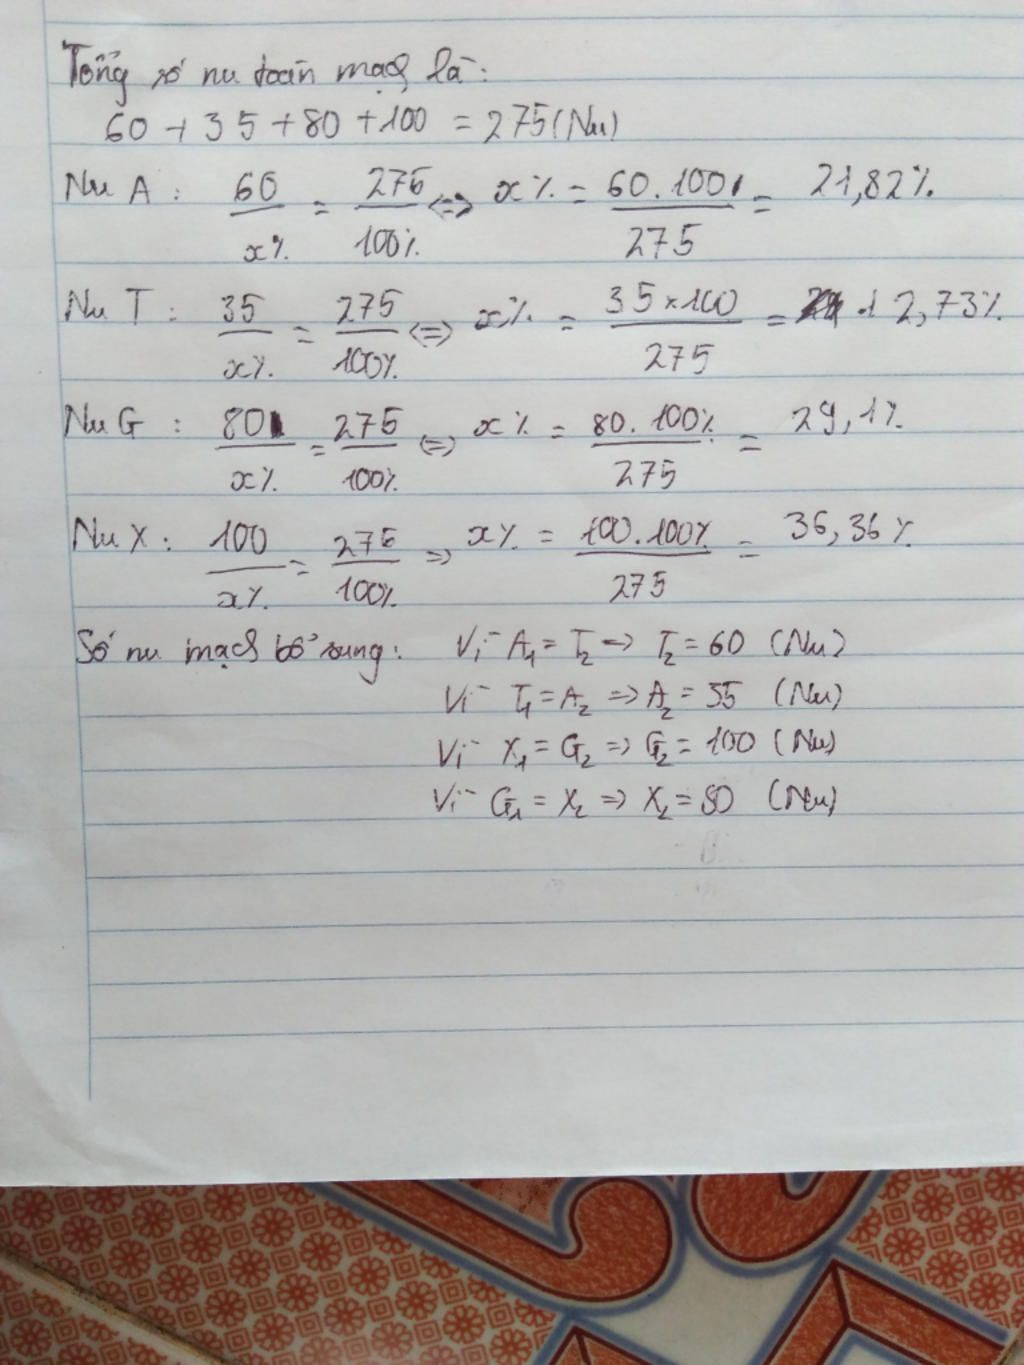 Tổng số nu toàn mạch là:
60 + 35 + 80 + 100 = 275 (Nu)
Nu A : 60/x% = 275/100% <=> x% = 60.100/275 = 21,82%
Nu T : 35/x% = 275/100% <=> x% = 35×100/275 = 12,73%
Nu G : 80/x% = 275/100% <=> x% = 80.100%/275 = 29,1%
Nu X : 100/x% = 275/100% => x% = 100.100%/275 = 36,36%
Số nu mạch bổ sung: Vì A₁ = T₂ => T₂ = 60 (Nu)
Vì T₁ = A₂ => A₂ = 35 (Nu)
Vì X₁ = G₂ => G₂ = 100 (Nu)
Vì G₁ = X₂ => X₂ = 80 (Nu)